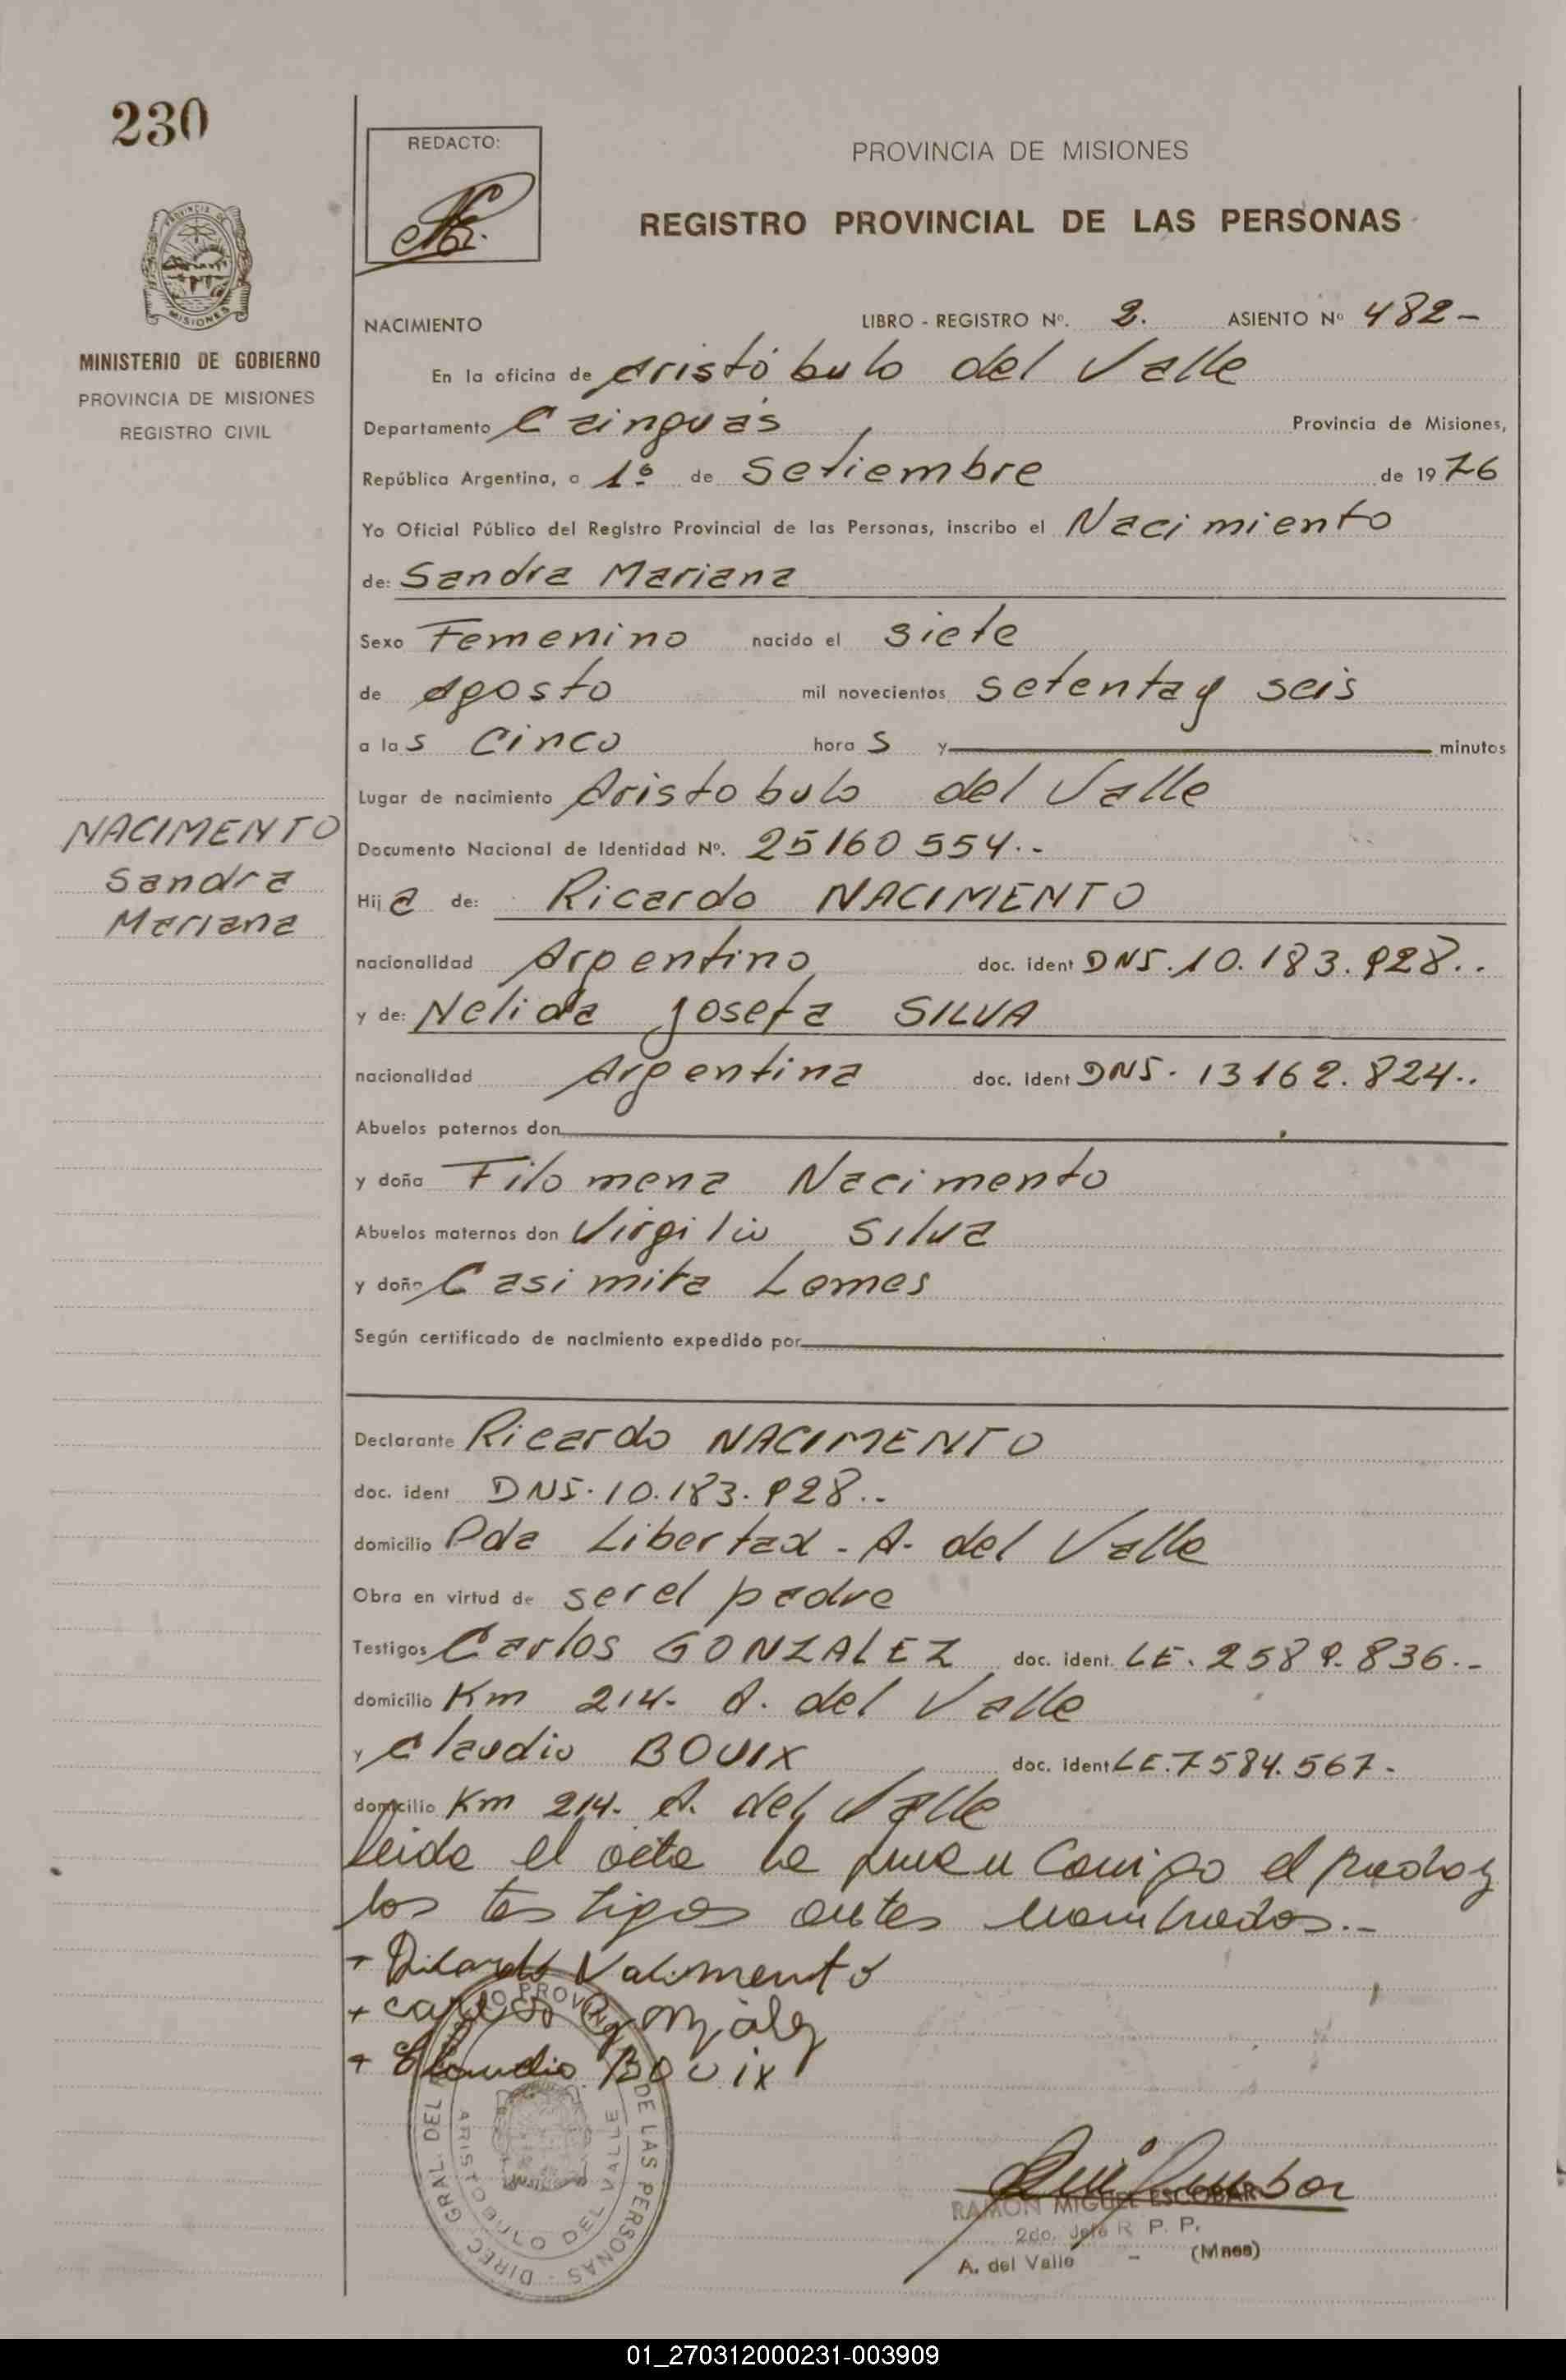 230
REDACTO:
PROVINCIA DE MISIONES
REGISTRO PROVINCIAL DE LAS PERSONAS
PROVINCIA DE MISIONES
MINISTERIO DE GOBIERNO
PROVINCIA DE MISIONES
REGISTRO CIVIL
NACIMIENTO LIBRO - REGISTRO Nº. 2. ASIENTO Nº 482-
En la oficina de Aristóbulo del Valle
Departamento Cainguás Provincia de Misiones,
República Argentina, a 1º de Setiembre de 1976
Yo Oficial Público del Registro Provincial de las Personas, inscribo el Nacimiento
de: Sandra Mariana
Sexo Femenino nacido el siete
de agosto mil novecientos setenta y seis
a las cinco horas y minutos
Lugar de nacimiento Aristobulo del Valle
NACIMENTO
Sandra
Mariana
Documento Nacional de Identidad Nº. 25160554.-
Hija de: Ricardo NACIMENTO
nacionalidad Argentino doc. ident DNI.10.183.928..
y de: Nelida Josefa SILVA
nacionalidad Argentina doc. ident DNI. 13162.824..
Abuelos paternos don
y doña Filomena Nacimento
Abuelos maternos don Virgilio Silva
y doña Casimira Lemes
Según certificado de nacimiento expedido por
Declarante Ricardo NACIMENTO
doc. ident DNI.10.183.928..
domicilio Pda Libertad - A. del Valle
Obra en virtud de ser el padre
Testigos Carlos GONZALEZ doc. ident. LE. 2589.836.-
domicilio Km 214- A. del Valle
y Claudio BOUIX doc. ident LE.7584.567-
domicilio Km 214- A. del Valle
leida el acta la firman conmigo el padre y
los testigos antes nombrados.-
+ Ricardo Nacimento
+ Carlos Gonzalez
+ Claudio BOUIX
DIREC. GRAL. DEL PROVIN DE LAS PERSONAS
ARISTOBULO DEL VALLE
RAMON MIGUEL ESCOBAR
2do. Jefe R. P. P.
A. del Valle - (Mnes)
01_270312000231-003909